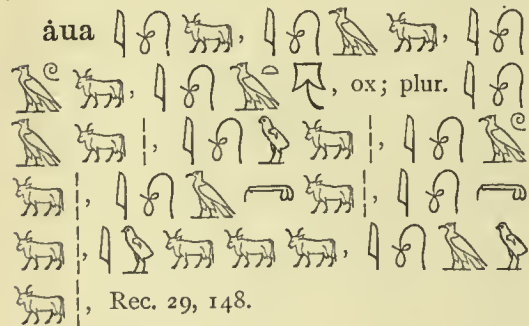 ȧua 𓇋𓍯𓃒, 𓇋𓍯𓄿𓃒, 𓇋𓍯
𓄿𓏲𓃒, 𓇋𓍯𓄿𓏏, ox; plur. 𓇋𓍯
𓄿𓃒𓏪, 𓇋𓍯𓅱𓃒𓏪, 𓇋𓍯𓄿𓏲
𓃒𓏪, 𓇋𓍯𓄿𓂝𓃒𓏪, 𓇋𓍯𓂝
𓃒𓏪, 𓇋𓅱𓃒𓃒𓃒, 𓇋𓍯𓄿𓅱
𓃒𓏪, Rec. 29, 148.